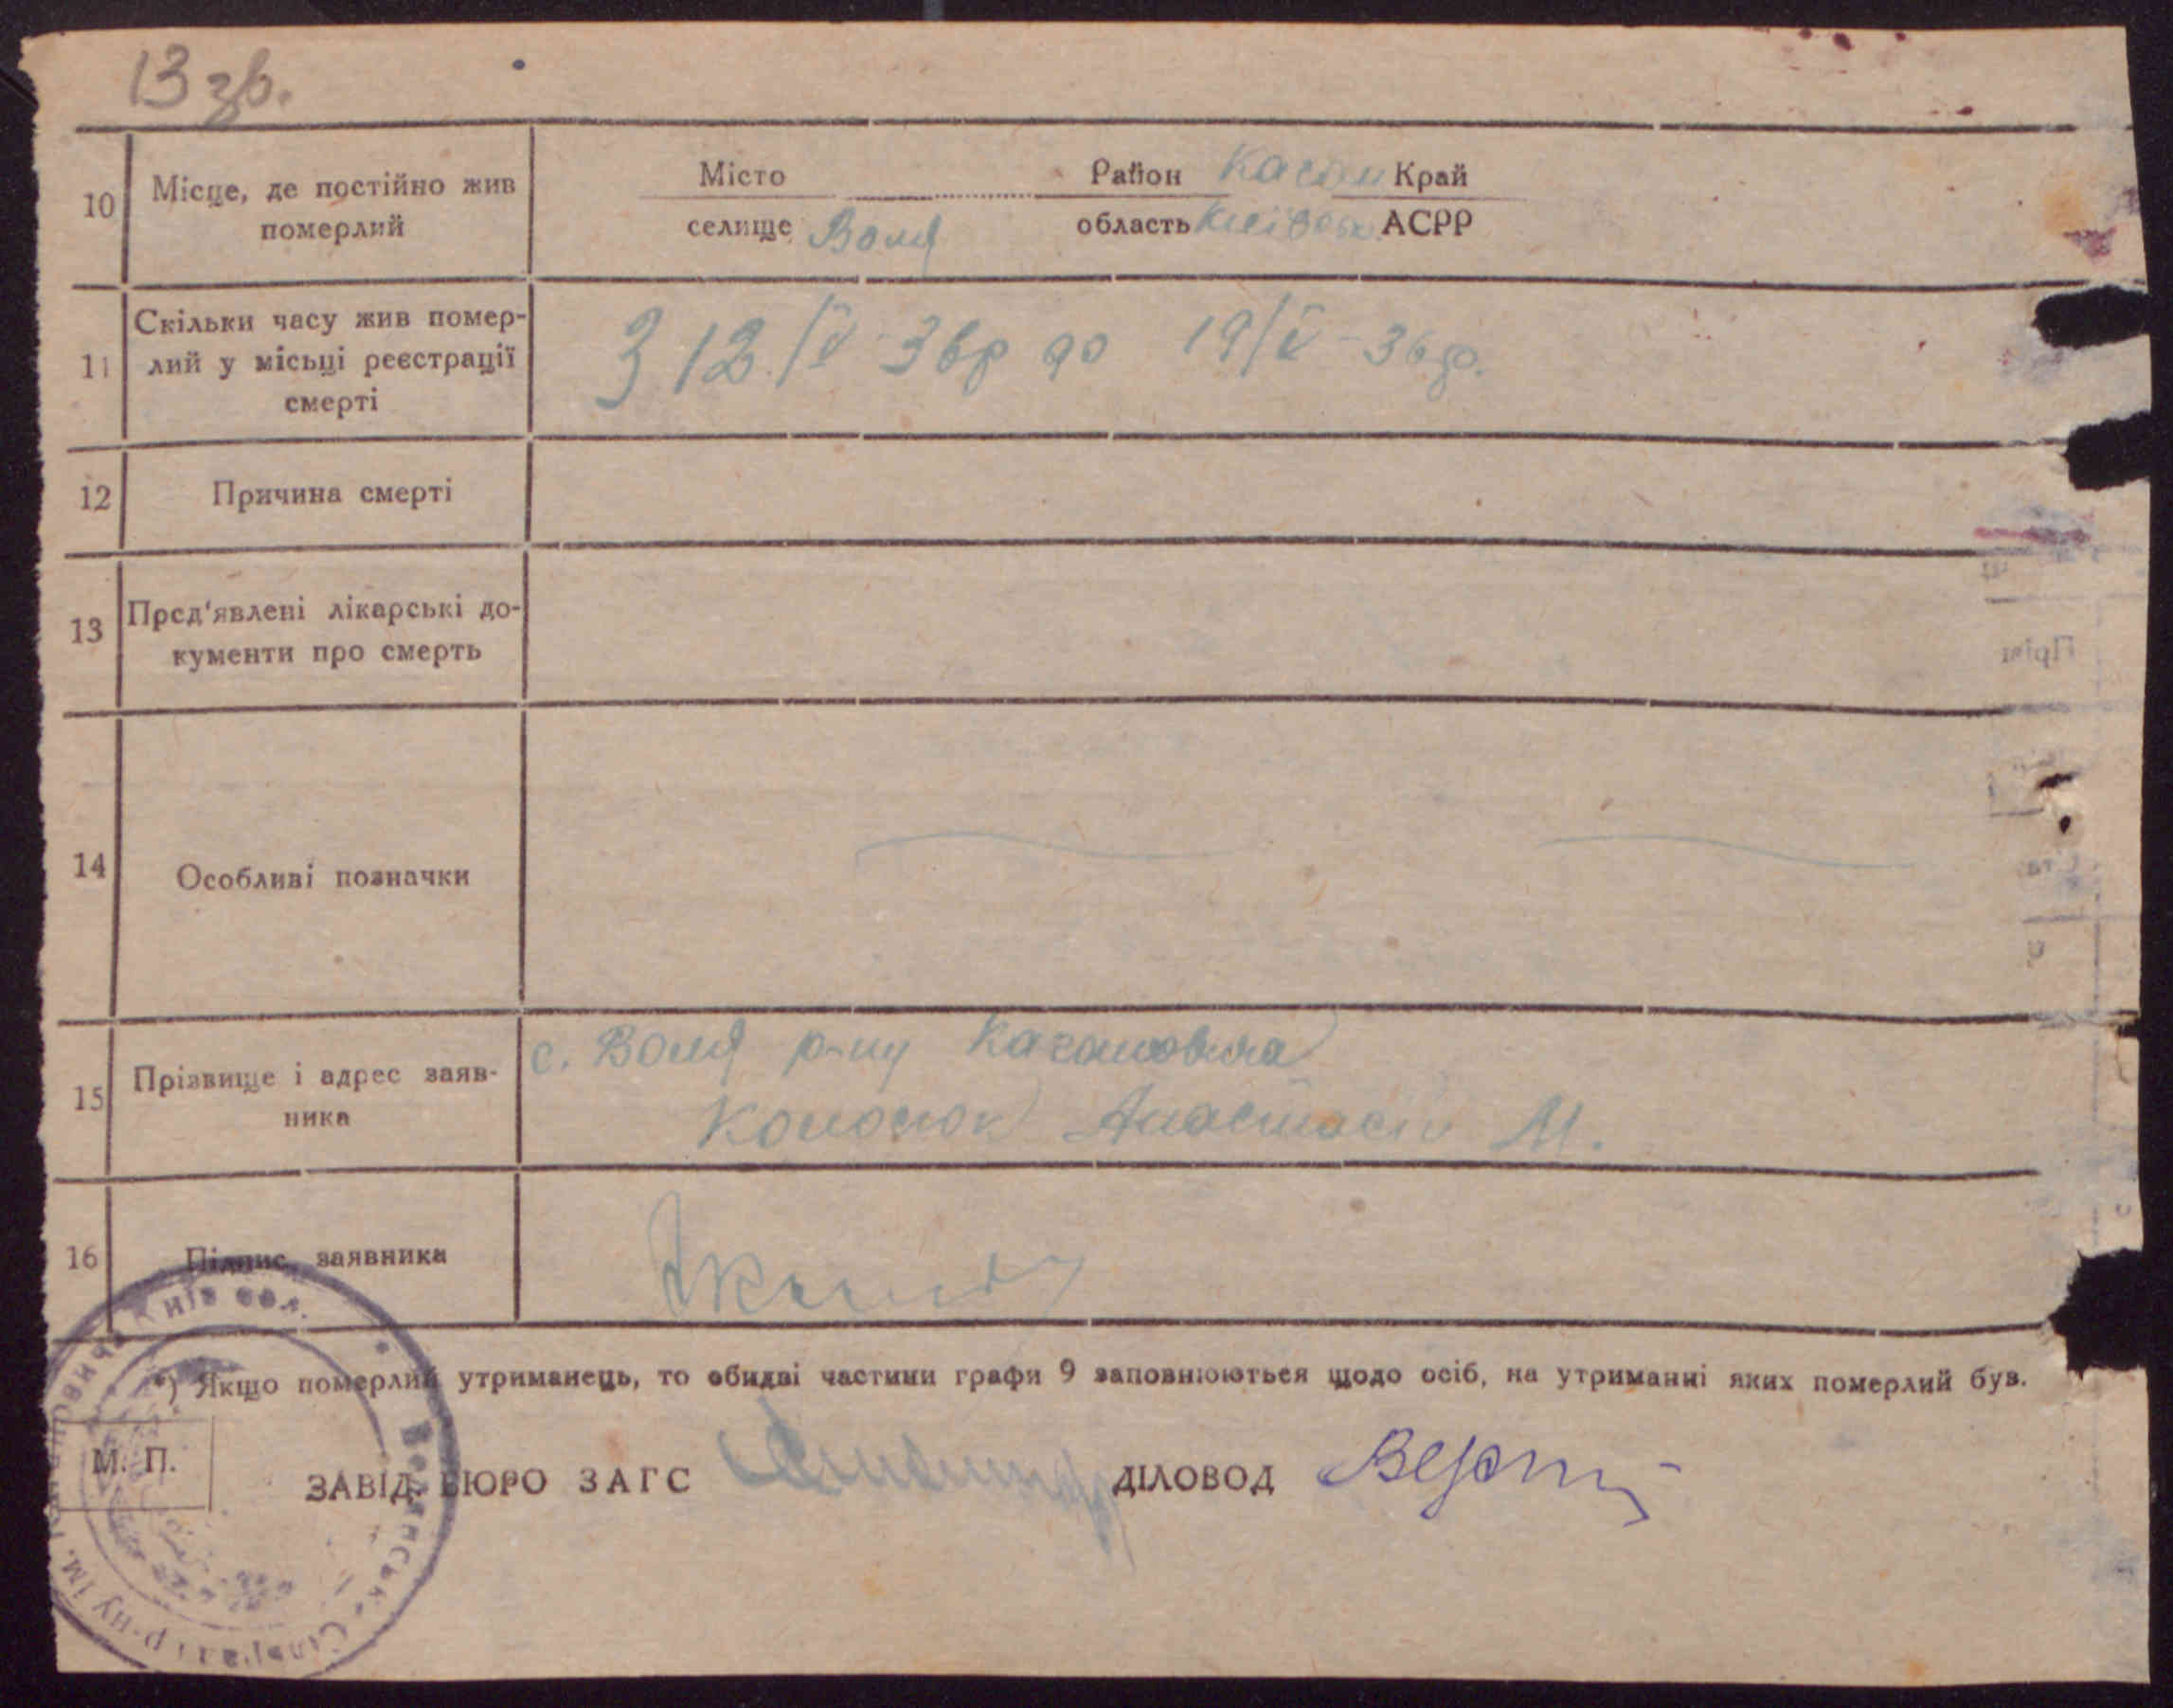 13 зв.
10 Місце, де постійно жив померлий
Місто Район Каган Край
селище Воля область Київськ. АСРР
11 Скільки часу жив помер-
лий у місьці реєстрації
смерті
З 12/IV 36р до 19/V-36 р.
12 Причина смерті
13 Пред'явлені лікарські до-
кументи про смерть
14 Особливі позначки
15 Прізвище і адрес заяв-
ника
с. Воля р-ну Кагановича
Анастасія М.
16 Підпис заявника
*) Якщо померлий утриманець, то обидві частини графи 9 заповнюються щодо осіб, на утриманні яких померлий був.
М. П.
ЗАВІД. БЮРО ЗАГС ДІЛОВОД